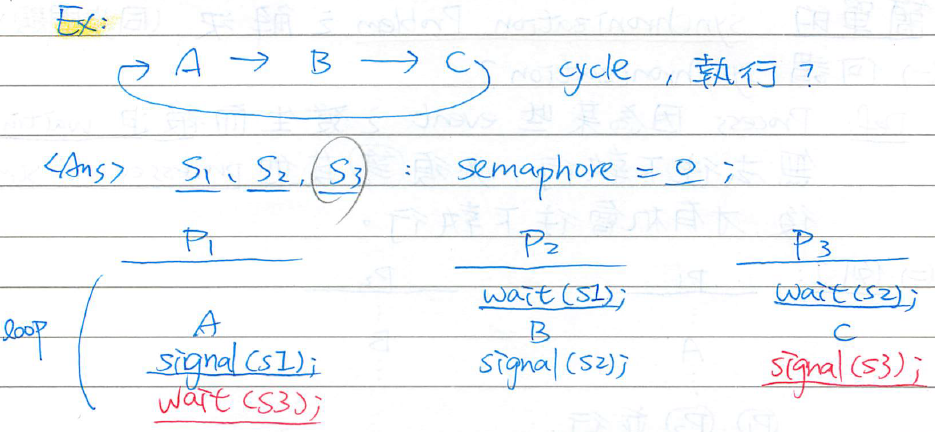 Ex:
→ A → B → C cycle, 執行?
<Ans> S1、S2, S3 : semaphore = 0;
P1 P2 P3
wait(S1); wait(S2);
loop A B C
signal(S1); signal(S2); signal(S3);
wait(S3);